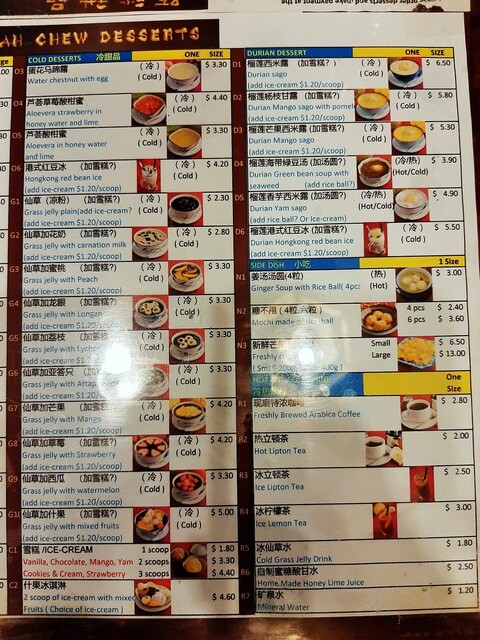 AH CHEW DESSERTS
COLD DESSERTS 冷甜品 ONE SIZE
O3 蛋花马蹄露 (冷) $ 3.30
Water chestnut with egg (Cold)
O4 芦荟草莓酸柑蜜 (冷) $ 4.40
Aloevera strawberry in (Cold)
honey water and lime
O5 芦荟酸柑蜜 (冷) $ 3.30
Aloevera in honey water (Cold)
and lime
O6 港式红豆冰 (加雪糕?) (冷) $ 4.20
Hongkong red bean ice (Cold)
(add ice-cream $1.20/scoop)
G1 仙草 (凉粉) (加雪糕?) (冷) $ 2.20
Grass jelly plain(add ice-cream? (Cold)
(add ice-cream $1.20/scoop)
G2 仙草加花奶 (加雪糕?) (冷) $ 2.80
Grass jelly with carnation milk (Cold)
(add ice-cream $1.20/scoop)
G3 仙草加蜜桃 (加雪糕?) (冷) $ 3.30
Grass jelly with Peach (Cold)
(add ice-cream $1.20/scoop)
G4 仙草加龙眼 (加雪糕?) (冷) $ 3.30
Grass jelly with Longan (Cold)
(add ice-cream
G5 仙草加荔枝 (加雪糕?) (冷) $ 3.30
Grass jelly with Lychee (Cold)
(add ice-cream $1
G6 仙草加亚答只 (加雪糕?) (冷) $ 3.30
Grass jelly with Attap (Cold)
(add ice-cream $1
G7 仙草加芒果 (加雪糕?) (冷) $ 4.20
Grass jelly with Mango (Cold)
(add ice-cream $1.20/scoop)
G8 仙草加草莓 (加雪糕?) (冷) $ 4.20
Grass jelly with Strawberry (Cold)
(add ice-cream $1.20/scoop)
G9 仙草加西瓜 (加雪糕?) (冷) $ 3.30
Grass jelly with watermelon (Cold)
(add ice-cream $1.20/scoop)
G10 仙草加什果 (加雪糕?) (冷) $ 5.00
Grass jelly with mixed fruits (Cold)
(add ice-cream $1.20/scoop)
C1 雪糕 /ICE-CREAM 1 scoop $ 1.80
Vanilla, Chocolate, Mango, Yam 2 scoops $ 3.30
Cookies & Cream, Strawberry 3 scoops $ 4.40
C2 什果冰淇淋
2 scoop of ice-cream with mixed $ 4.60
Fruits ( Choice of ice-cream )
DURIAN DESSERT ONE SIZE
D1 榴莲西米露 (加雪糕?) (冷) $ 6.50
Durian sago (Cold)
(add ice-cream $1.20/scoop)
D2 榴莲杨枝甘露 (加雪糕?) (冷) $ 5.80
Durian Mango sago with pomelo (Cold)
(add ice-cream $1.20/scoop)
D3 榴莲芒果西米露 (加雪糕?) (冷) $ 5.30
Durian Mango sago (Cold)
(add ice-cream $1.20/scoop)
D4 榴莲海带绿豆汤 (加汤圆?) (冷/热) $ 3.90
Durian Green bean soup with (Hot/Cold)
seaweed (add rice ball?)
D5 榴莲香芋西米露 (加汤圆?) (冷/热) $ 4.90
Durian Yam sago (Hot/Cold)
(add rice ball? Or Ice-cream)
D6 榴莲港式红豆冰 (加雪糕?) (冷) $ 5.50
Durian Hongkong red bean ice (Cold)
(add ice-cream $1.20/scoop)
SIDE DISH 小吃 1 Size
N1 姜汤汤圆(4粒) (热) $ 3.00
Ginger Soup with Rice Ball( 4pcs (Hot)
N2 糖不甩 ( 4粒,六粒 ) 4 pcs $ 2.40
Mochi made of rice ball 6 pcs $ 3.60
N3 新鲜芒 Small $ 6.50
Freshly Large $ 13.00
One
Size
R1 现磨特浓咖啡 $ 2.80
Freshly Brewed Arabica Coffee
R2 热立顿茶 $ 2.00
Hot Lipton Tea
R3 冰立顿茶 $ 2.50
Ice Lipton Tea
R4 冰柠檬茶 $ 3.00
Ice Lemon Tea
R5 冰仙草水 $ 1.80
Cold Grass Jelly Drink
R6 自制蜜糖酸甘水 $ 2.50
Home Made Honey Lime Juice
R7 矿泉水 $ 1.20
Mineral Water